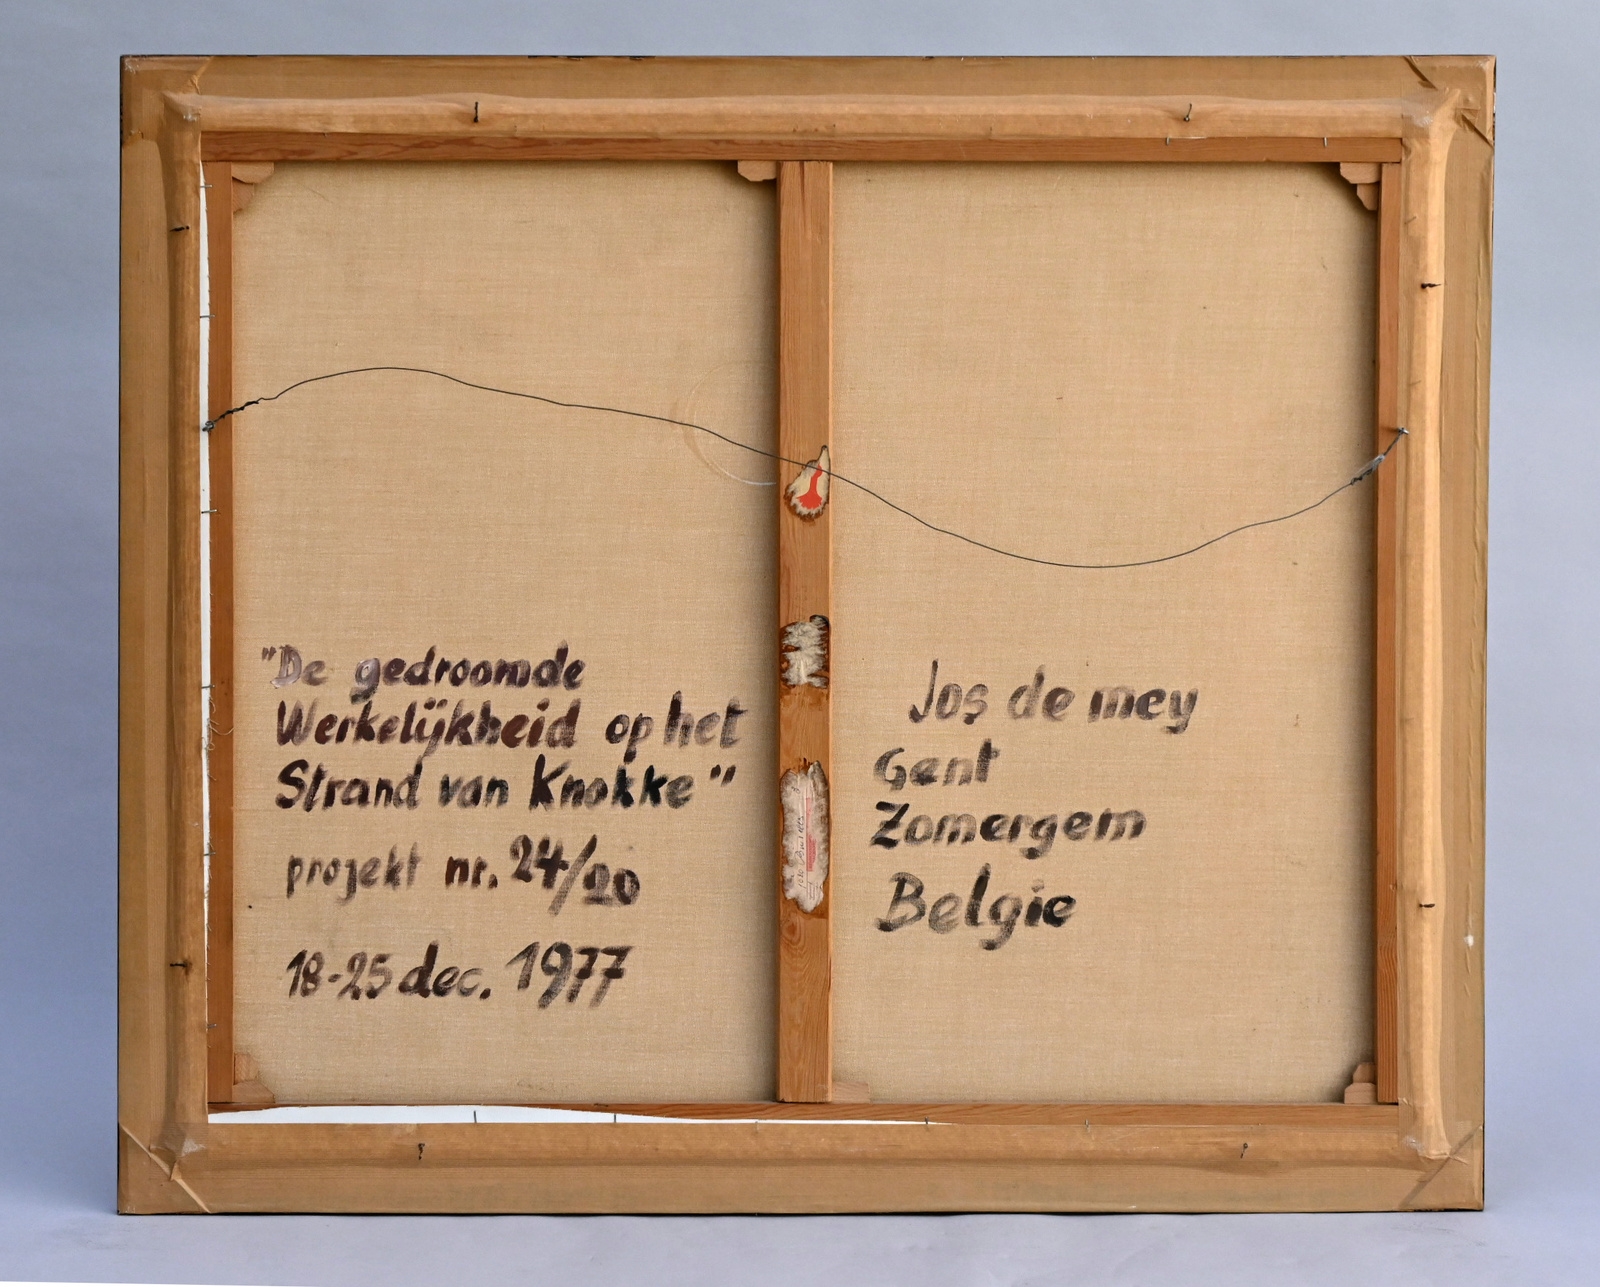 "De gedroomde
Werkelijkheid op het
Strand van Knokke"
projekt nr. 24/20
18-25 dec. 1977
Jos de mey
Gent
Zomergem
Belgie